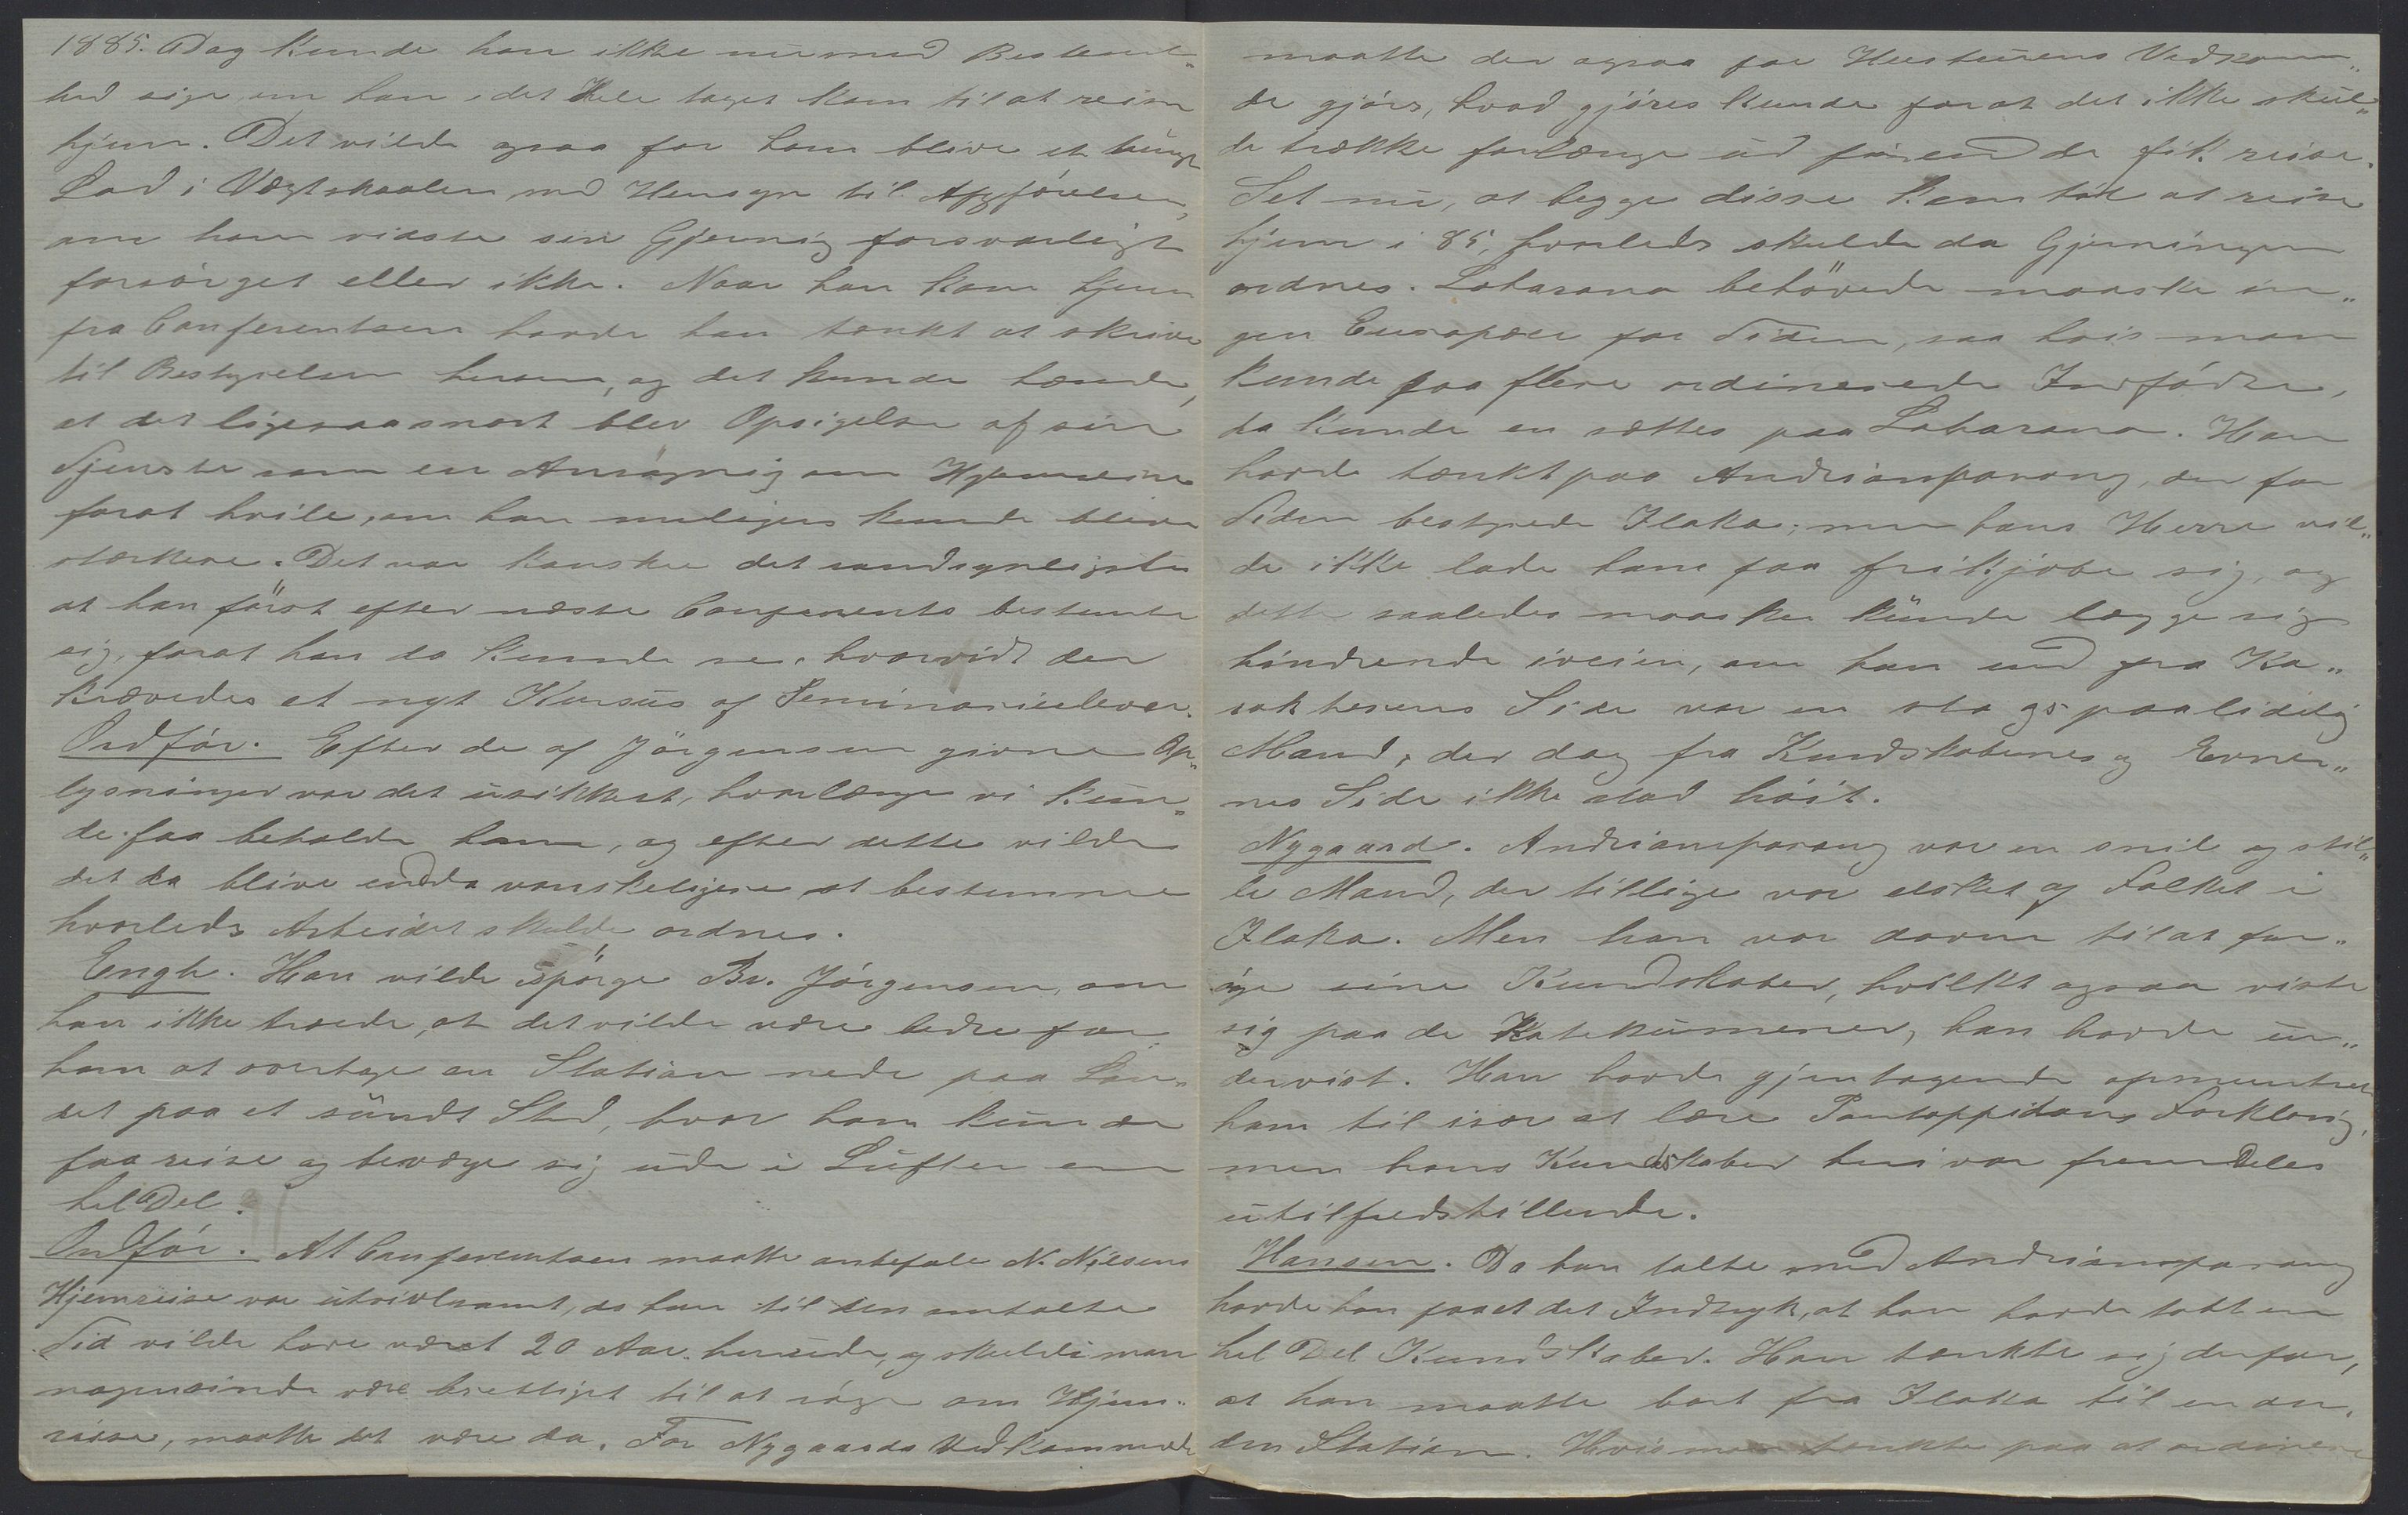 1885. Dog kunde han ikke nu med Bestemt„
hed sige om han i det Hele taget kom til at reise
hjem. Det vilde ogsaa for ham blive et tungt
Lod i Vægtskaalen med Hensyn til Afgjörelsen,
om han vidste sin Gjerning forsvarligt
forsörget eller ikke. Naar han kom hjem
fra Conferentsen havde han tænkt at skrive
til Bestyrelsen herom, og det kunde hænde,
at det ligesaasnart blev Opsigelse af sin
Tjeneste som en Ansögning om Hjemreise
forat hvile, om han muligens kunde blive
stærkere. Det var kanskee det sandsynligste
at han först efter næste Conferents bestemte
sig, forat han da kunde se, hvorvidt der
krævedes et nyt Kursus af Seminarieelever.
Ordför. Efter de af Jörgensen givne Op„
lysninger var det usikkert, hvorlænge vi kun„
de faa beholde ham, og efter dette vilde
det da blive endda vanskeligere at bestemme
hvorledes Arbeidet skulde ordnes.
Engh. Han vilde spörge Br. Jörgensen, om
han ikke troede, at det vilde være bedre for
ham at overtage en Station nede paa Lan„
det paa et sundt Sted, hvor han kunde
faa reise og bevæge sig ude i Luften en
hel Del.
Ordför. At Conferentsen maatte anbefale N. Nilsens
Hjemreise var utvivlsomt, da han til den omtalte
Tid vilde have været 20 Aar herude, og skulde man
nogensinde være berettiget til at söge om Hjem„
reise, maatte det være da. For Nygaards Vedkommende
maatte der ogsaa for Hustruens Vedkom„
de gjöres, hvad gjöres kunde forat det ikke skul„
de trække forlænge ud förend de fik reise.
Set nu, at begge disse kom til at reise
hjem i 85, hvorledes skulde da Gjerningen
ordnes. Loharano behövede maaske in„
gen Europæer for Tiden, saa hvis man
kunde faa flere ordinerede Indfödte,
da kunde en sættes paa Loharano. Han
havde tænkt paa Andriamparany, der for
Tiden bestyrede Ilaka; men hans Herre vil„
de ikke lade ham faa frikjöbe sig, og
dette saaledes maaske kunde lægge sig
hindrende iveien, om han end fra Ka„
rakterens Side var en stö og paalidelig
Mand, der dog fra Kundskabernes og Evner„
nes Side ikke stod höit.
Nygaard. Andriamparany var en snil og stil„
le Mand, der tillige var elsket af Folket i
Ilaka. Men han var doven til at for„
öge sine Kundskaber, hvilket ogsaa viste
sig paa de Katekumener, han havde un„
dervist. Han havde gjentagende opmuntret
ham til især at lære Pontoppidans Forklaring,
men hans Kundskaber heri var fremdeles
utilfredstillende.
Hansen. Da han talte med Andriamparany
havde han faaet det Indtryk, at han havde tabt en
hel Del Kundskaber. Han tænkte sig derfor,
at han maatte bort fra Ilaka til en an„
den Station. Hvis man tænkte paa at ordinere